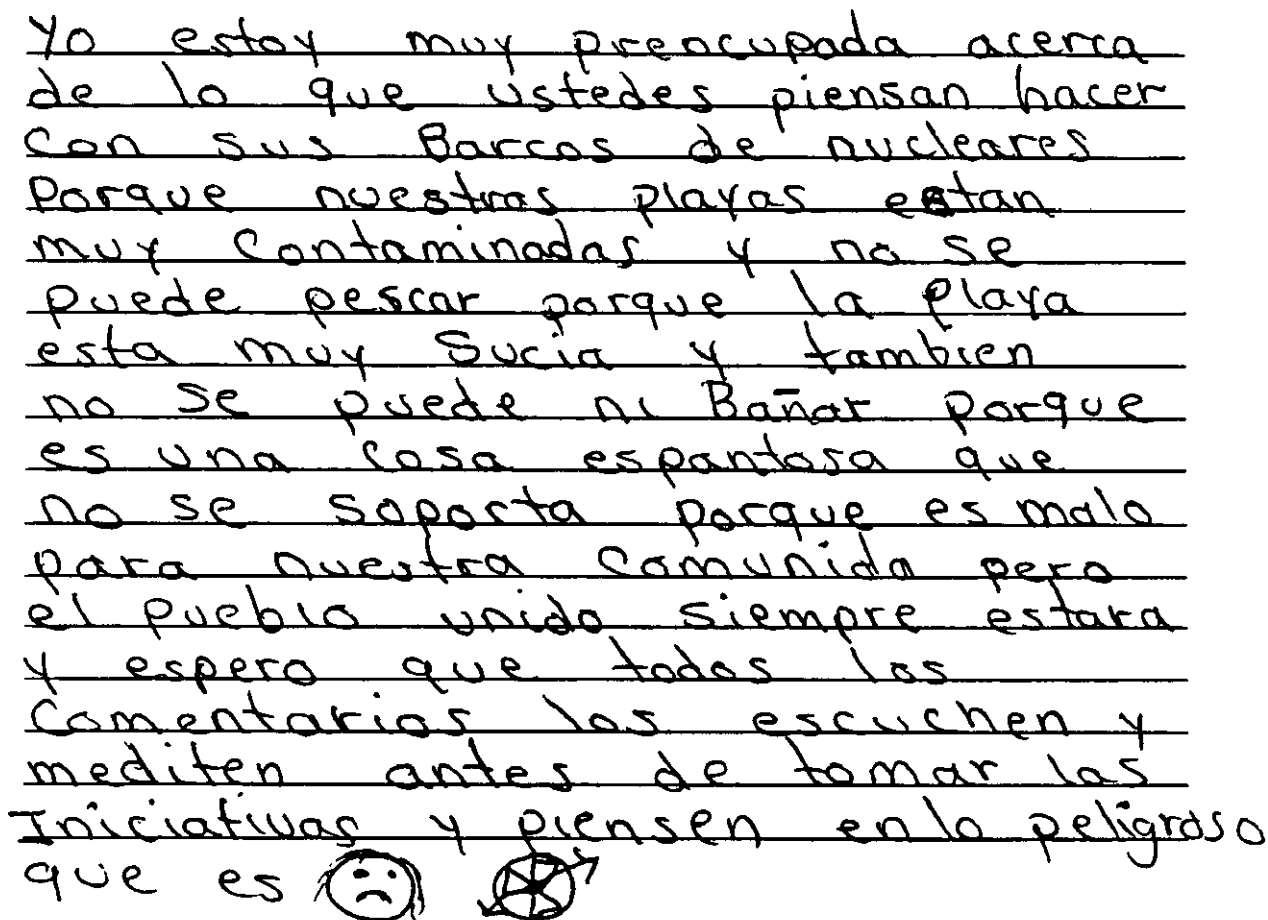 Yo estoy muy preocupada acerca
de lo que ustedes piensan hacer
con sus Barcos de nucleares
Porque nuestras playas estan
muy Contaminadas y no se
puede pescar porque la Playa
esta muy Sucia y tambien
no se puede ni Bañar Porque
es una cosa espantosa que
no se soporta porque es malo
para nuestra Comunida pero
el Pueblo unido siempre estara
y espero que todos los
Comentarios los escuchen y
mediten antes de tomar las
Iniciativas y piensen en lo peligroso
que es